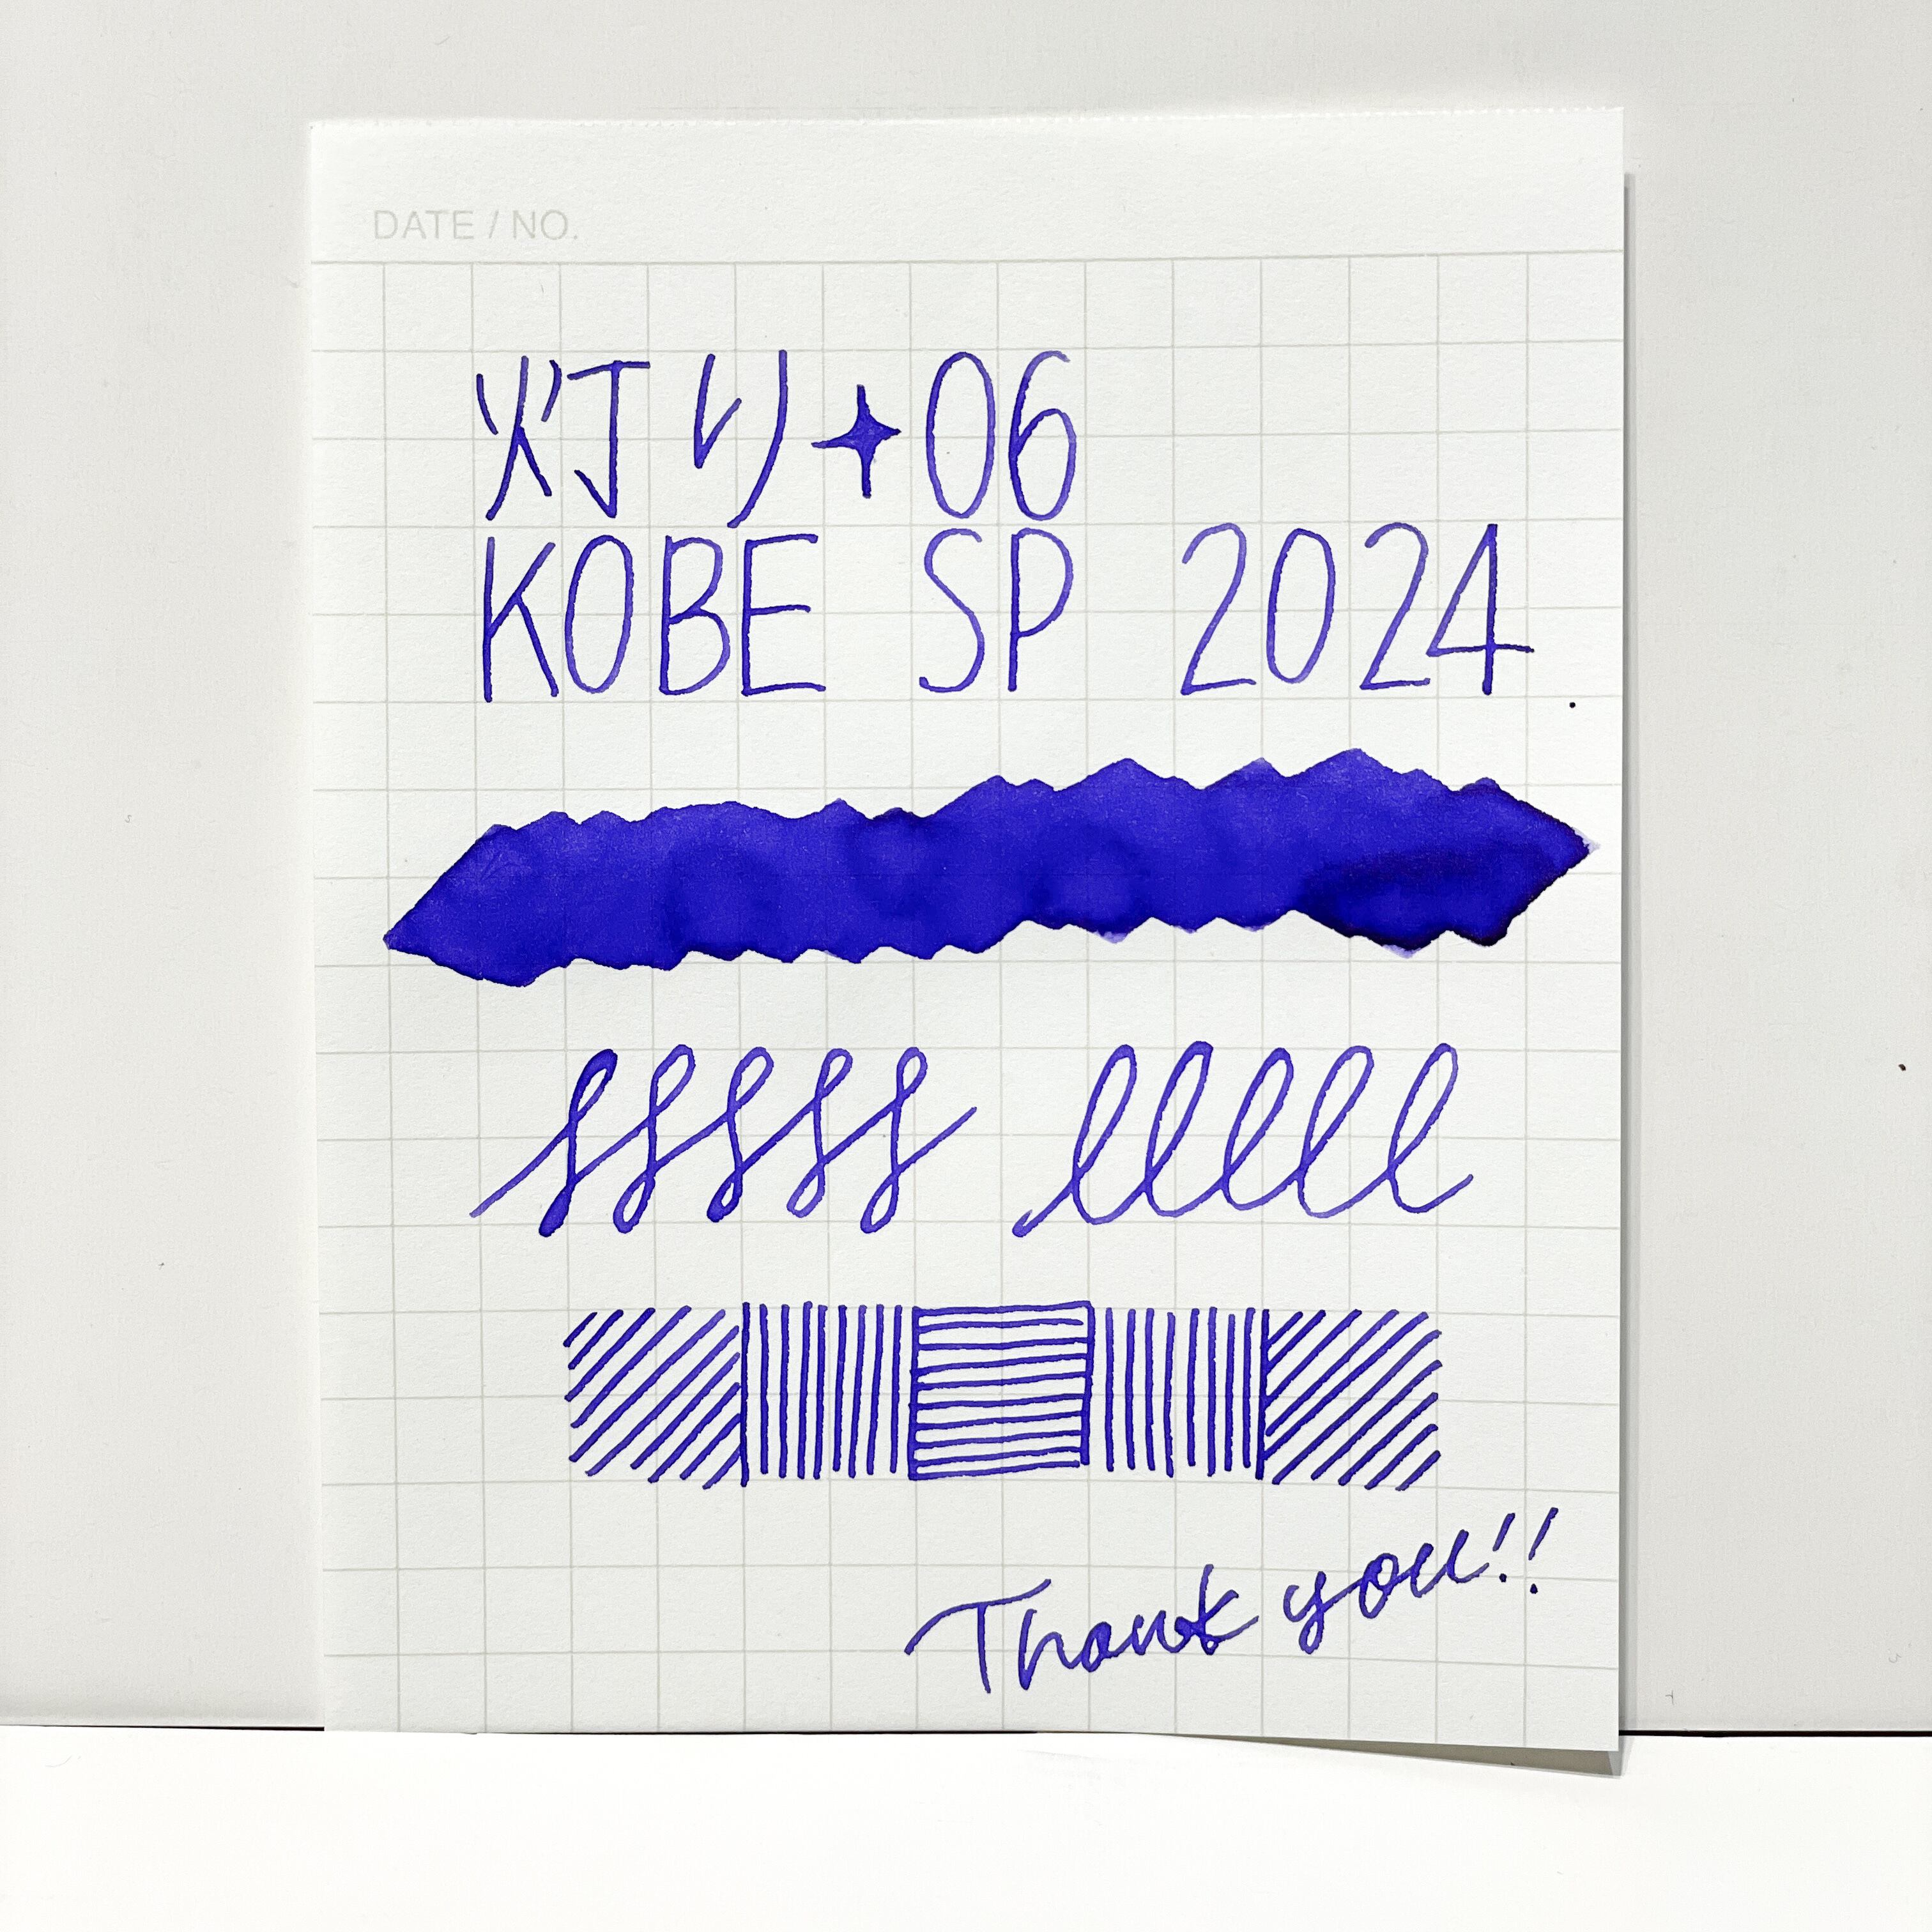 DATE / NO.
灯り✦06
KOBE SP 2024
sssss lllll
Thank you!!